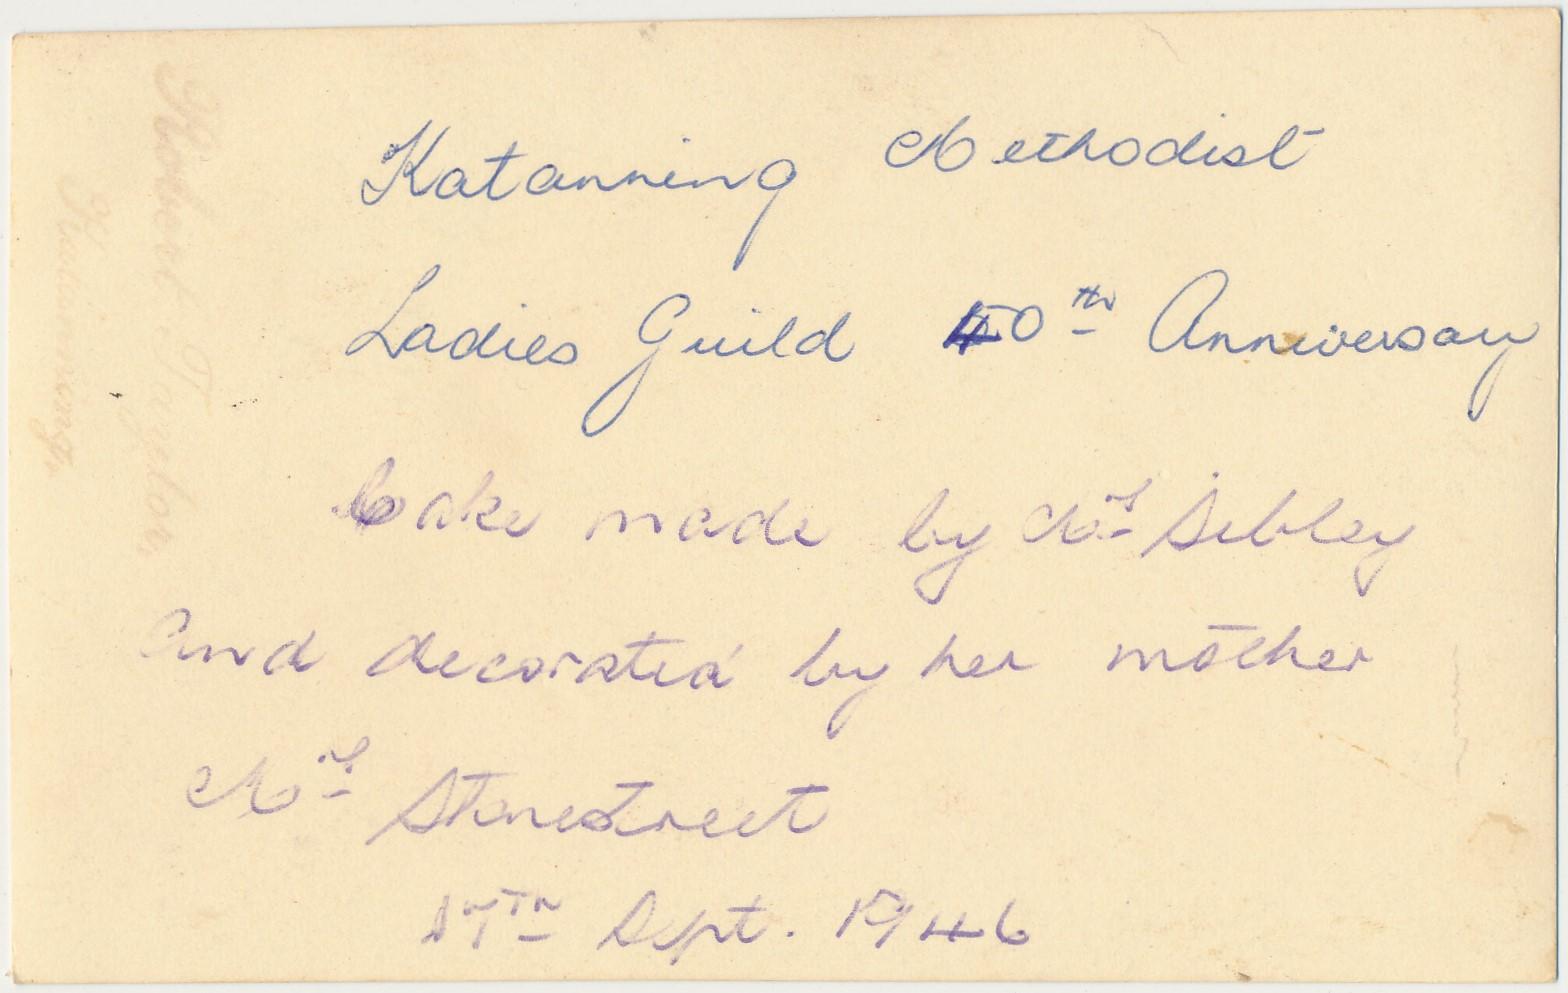 Katanning Methodist
Ladies Guild 40th Anniversary
Cake made by Mrs Sibley
and decorated by her mother
Mrs Stonestreet
17th Sept. 1946
Robert Taylor,
Katanning.